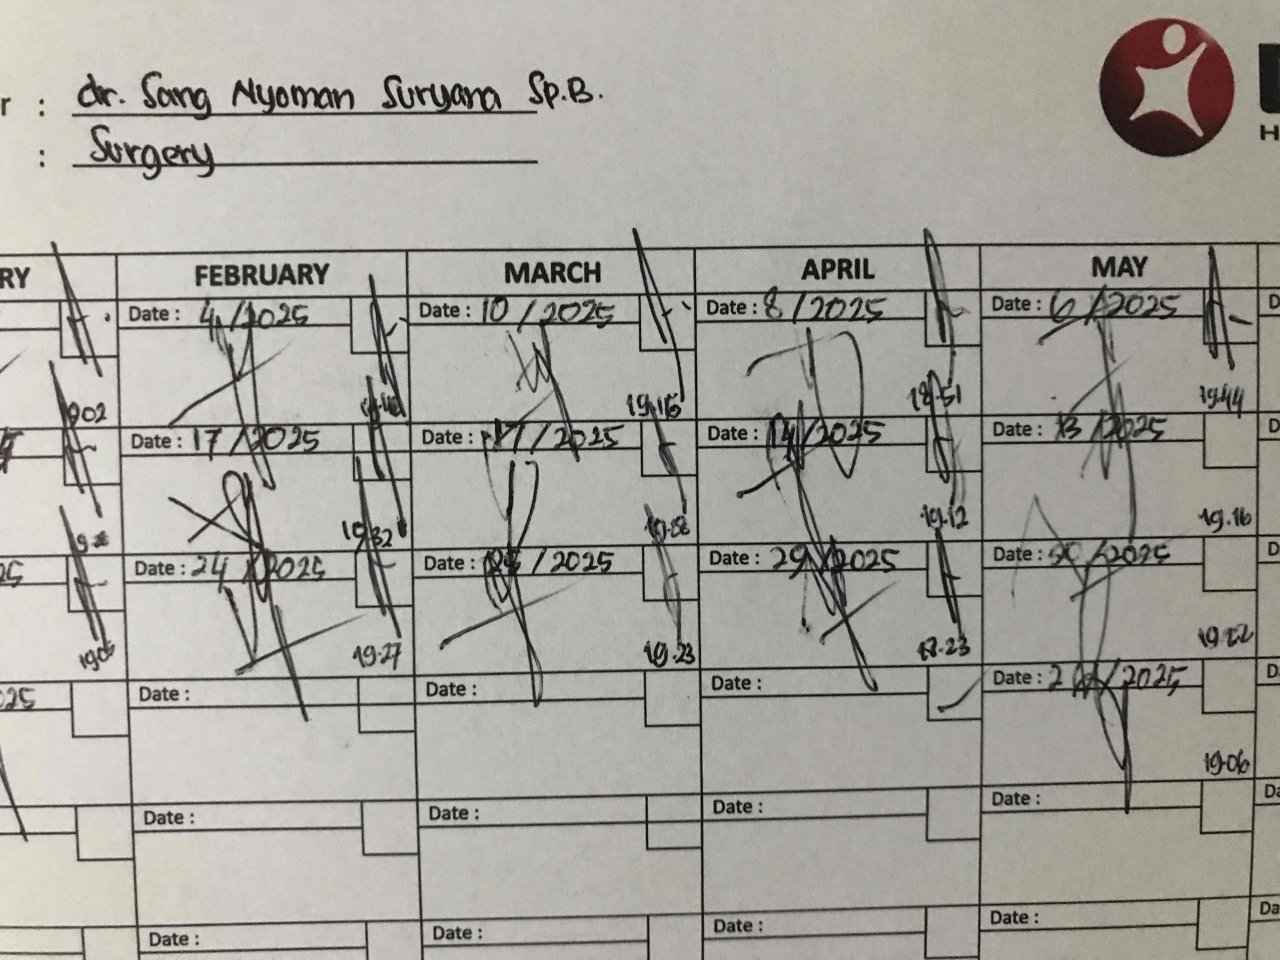 r : dr. Sang Nyoman Suryana Sp.B.
: Surgery
H
RY FEBRUARY MARCH APRIL MAY
Date : 4 /2025 Date : 10 /2025 Date : 8 /2025 Date : 6 /2025 D
1902 19.16 18.51 19.44
Date : 17 /2025 Date : 17 /2025 Date : 14 /2025 Date : 13 /2025 D
19.32 19.12 19.16
25 Date : 24 /2025 Date : /2025 Date : 29 /2025 Date : /2025 D
1905 19.27 19.23 18.23
025 Date : Date : Date : Date : /2025 D
19.06
Date : Date : Date : Date : Da
Date : Date : Date : Date : Da